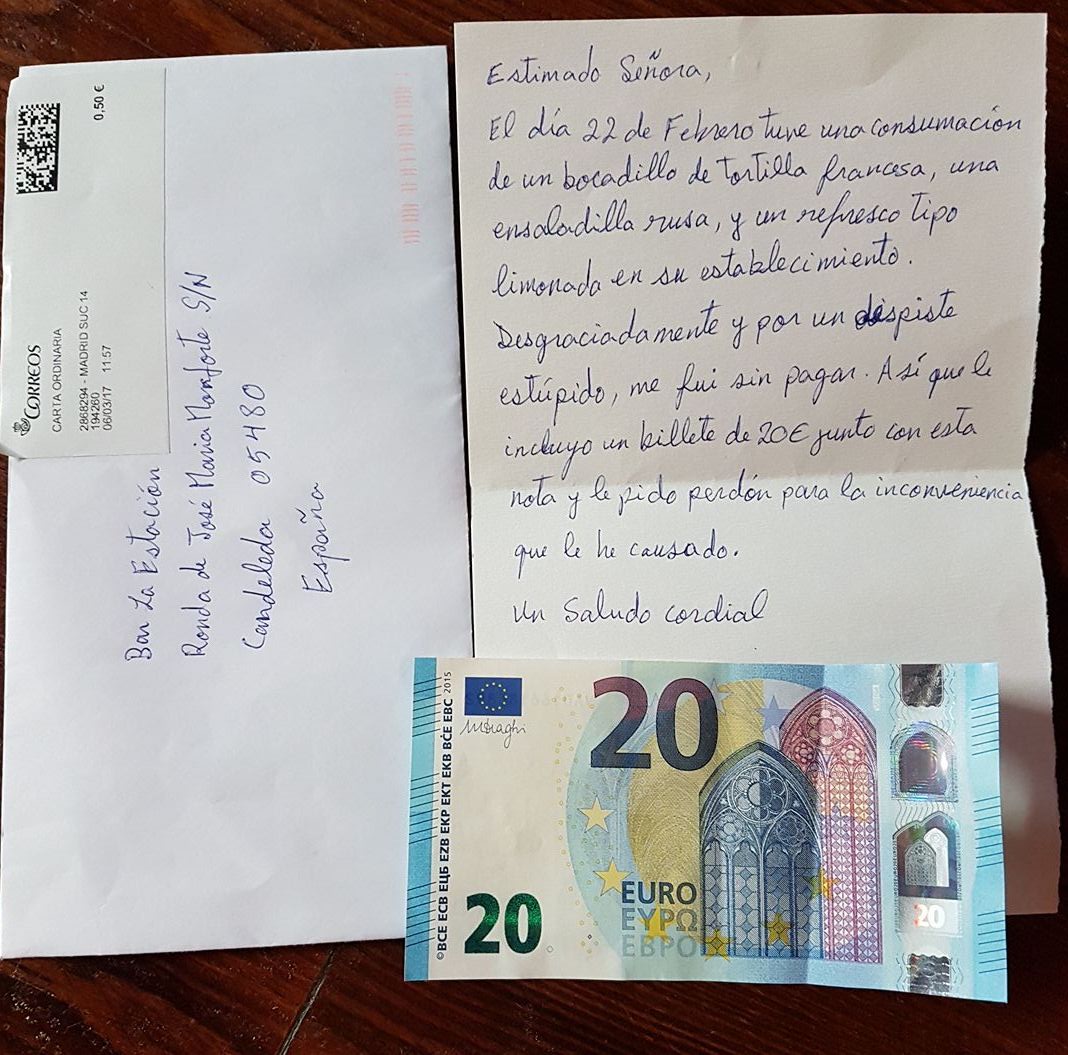 0,50 €
Correos
CARTA ORDINARIA
2868294 - MADRID SUC 14
194260
06/03/17 11:57
Bar La Estación
Ronda de José Maria Monforte S/N
Candeleda 05480
España
Estimado Señora,
El día 22 de Febrero tuve una consumación
de un bocadillo de tortilla francesa, una
ensaladilla rusa, y un refresco tipo
limonada en su establecimiento.
Desgraciadamente y por un despiste
estúpido, me fui sin pagar. Así que le
incluyo un billete de 20€ junto con esta
nota y le pido perdón para la inconveniencia
que le he causado.
Un Saludo cordial
©BCE ECB ЕЦБ EZB EKP EKT EKB BĊE EBC 2015
MDraghi
20
20
EURO
ΕΥΡΩ
ЕВРО
20